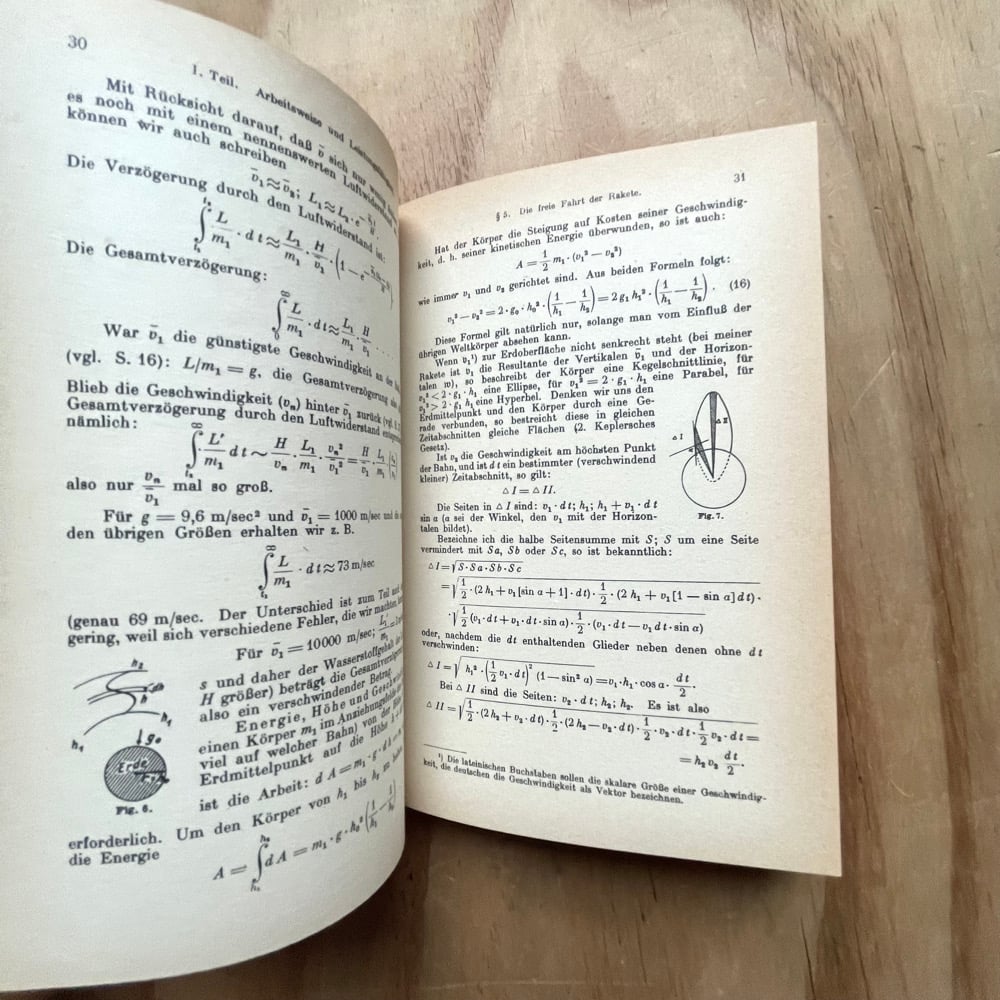 30
I. Teil. Arbeitsweise und
Mit Rücksicht darauf, daß v̄ sich nur wenig
es noch mit einem nennenswerten Luftwiderstand
können wir auch schreiben
v̄₁ ≈ v̄₂; L₁ ≈ L₂ · e
Die Verzögerung durch den Luftwiderstand ist:
∫ L/m₁ · d t ≈ L₁/m₁ · H/v̄₁ · (1 − e
Die Gesamtverzögerung:
∫ L/m₁ · d t ≈ L₁/m₁ · H/
War v̄₁ die günstigste Geschwindigkeit an der
(vgl. S. 16): L/m₁ = g, die Gesamtverzögerung
Blieb die Geschwindigkeit (vₙ) hinter v̄₁ zurück (vgl.
Gesamtverzögerung durch den Luftwiderstand
nämlich:
∫ L′/m₁ d t ∼ H/vₙ · L₁/m₁ · vₙ²/v̄₁² = H/v̄₁ · L₁/m₁
also nur vₙ/v̄₁ mal so groß.
Für g = 9,6 m/sec² und v̄₁ = 1000 m/sec und
den übrigen Größen erhalten wir z. B.
∫ L/m₁ · d t ≈ 73 m/sec
(genau 69 m/sec. Der Unterschied ist zum Teil
gering, weil sich verschiedene Fehler, die wir machten,
Für v̄₁ = 10000 m/sec;
s und daher der Wasserstoffgehalt der
H größer) beträgt die
also ein verschwindender Betrag.
Energie, Höhe und
einen Körper m₁ im Anziehungsfelde
viel auf welcher Bahn) von der
Erdmittelpunkt auf die Höhe
h₂
h
h₁
h₁
g₀
Erde
Fig. 6.
ist die Arbeit: d A = m₁ · g · d h
erforderlich. Um den Körper von h₁ bis h₂ zu
die Energie
A = ∫ d A = m₁ · g · h₀² (1/h₁ −
§ 5. Die freie Fahrt der Rakete.
31
Hat der Körper die Steigung auf Kosten seiner Geschwindig-
keit, d. h. seiner kinetischen Energie überwunden, so ist auch:
A = 1/2 m₁ · (v₁² − v₂²)
wie immer v₁ und v₂ gerichtet sind. Aus beiden Formeln folgt:
v₁² − v₂² = 2 · g₀ · h₀² · (1/h₁ − 1/h₂) = 2 g₁ h₁² · (1/h₁ − 1/h₂) . (16)
Diese Formel gilt natürlich nur, solange man vom Einfluß der
übrigen Weltkörper absehen kann.
Wenn v₁¹) zur Erdoberfläche nicht senkrecht steht (bei meiner
Rakete ist v₁ die Resultante der Vertikalen v̄₁ und der Horizon-
talen w), so beschreibt der Körper eine Kegelschnittlinie, für
v₁² < 2 · g₁ · h₁ eine Ellipse, für v₁² = 2 · g₁ · h₁ eine Parabel, für
v₁² > 2 · g₁ h₁ eine Hyperbel. Denken wir uns den
Erdmittelpunkt und den Körper durch eine Ge-
rade verbunden, so bestreicht diese in gleichen
Zeitabschnitten gleiche Flächen (2. Keplersches
Gesetz).
Ist v₂ die Geschwindigkeit am höchsten Punkt
der Bahn, und ist d t ein bestimmter (verschwindend
kleiner) Zeitabschnitt, so gilt:
△ I = △ II.
△ I
△ 2
Fig. 7.
Die Seiten in △ I sind: v₁ · d t; h₁; h₁ + v₁ · d t
sin α (α sei der Winkel, den v₁ mit der Horizon-
talen bildet).
Bezeichne ich die halbe Seitensumme mit S; S um eine Seite
vermindert mit Sa, Sb oder Sc, so ist bekanntlich:
△ I = √(S · Sa · Sb · Sc)
= √(1/2 · (2 h₁ + v₁ [sin α + 1] · d t) · 1/2 · (2 h₁ + v₁ [1 − sin α] d t) ·
· √(1/2 (v₁ · d t + v₁ · d t · sin α) · 1/2 · (v₁ · d t − v₁ d t · sin α)
oder, nachdem die d t enthaltenden Glieder neben denen ohne d t
verschwinden:
△ I = √(h₁² · (1/2 v₁ · d t)² (1 − sin² α) = v₁ · h₁ · cos α · d t/2.
Bei △ II sind die Seiten: v₂ · d t; h₂; h₂. Es ist also
△ II = √(1/2 · (2 h₂ + v₂ · d t) · 1/2 · (2 h₂ − v₂ · d t) · 1/2 · v₂ · d t · 1/2 v₂ · d t =
= h₂ v₂ d t/2.
¹) Die lateinischen Buchstaben sollen die skalare Größe einer Geschwindig-
keit, die deutschen die Geschwindigkeit als Vektor bezeichnen.